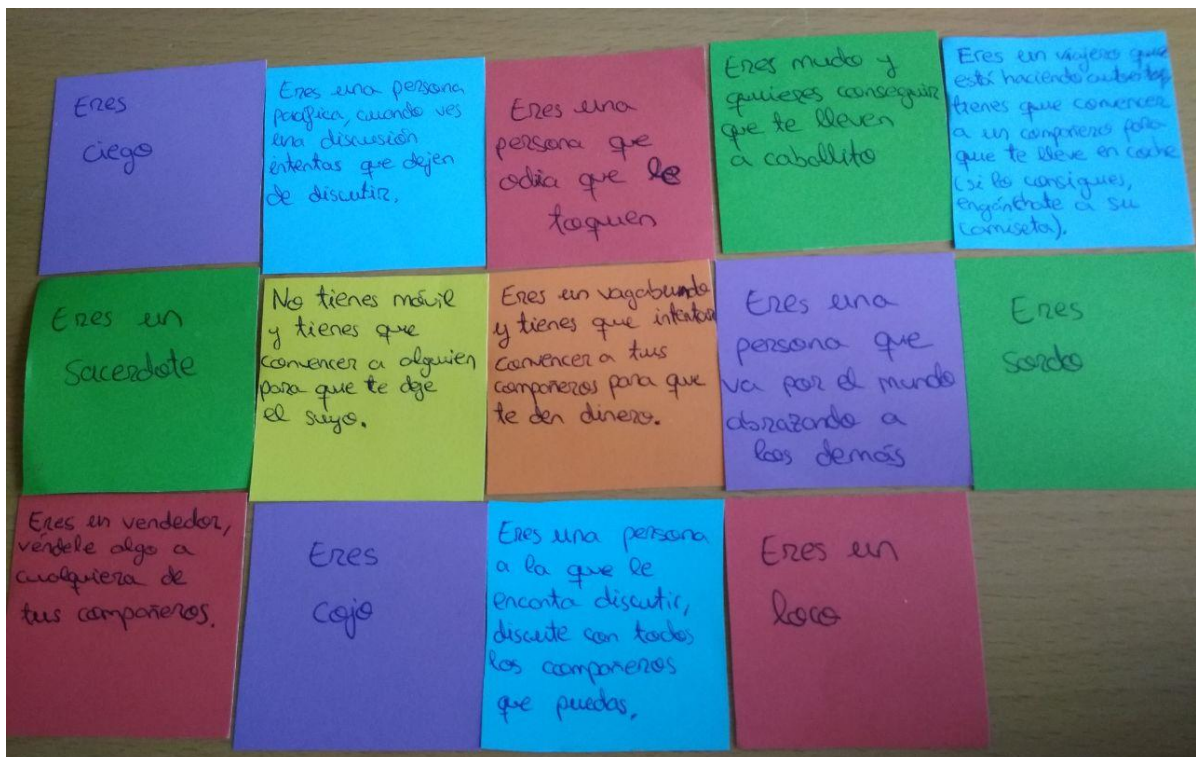 Eres
ciego
Eres una persona
pacífica, cuando ves
una discusión
intentas que dejen
de discutir.
Eres una
persona que
odia que le
toquen
Eres mudo y
quieres conseguir
que te lleven
a caballito
Eres un viajero que
está haciendo autostop
tienes que convencer
a un compañero para
que te lleve en coche
(si lo consigues,
engánchate a su
camiseta).
Eres un
sacerdote
No tienes móvil
y tienes que
convencer a alguien
para que te deje
el suyo.
Eres un vagabundo
y tienes que intentar
convencer a tus
compañeros para que
te den dinero.
Eres una
persona que
va por el mundo
abrazando a
los demás
Eres
sordo
Eres un vendedor,
véndele algo a
cualquiera de
tus compañeros.
Eres
cojo
Eres una persona
a la que le
encanta discutir,
discute con todos
los compañeros
que puedas.
Eres un
loco